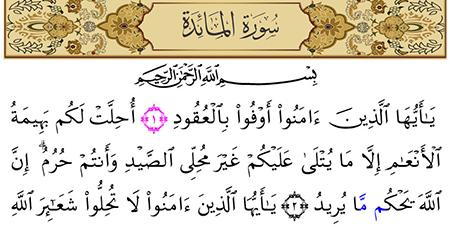 سُورَةُ المَائِدَة
بِسْمِ اللَّهِ الرَّحْمَٰنِ الرَّحِيمِ
يَٰٓأَيُّهَا ٱلَّذِينَ ءَامَنُوٓا۟ أَوْفُوا۟ بِٱلْعُقُودِ ﴿١﴾ أُحِلَّتْ لَكُم بَهِيمَةُ
ٱلْأَنْعَٰمِ إِلَّا مَا يُتْلَىٰ عَلَيْكُمْ غَيْرَ مُحِلِّى ٱلصَّيْدِ وَأَنتُمْ حُرُمٌ ۗ إِنَّ
ٱللَّهَ يَحْكُم مَّا يُرِيدُ ﴿٢﴾ يَٰٓأَيُّهَا ٱلَّذِينَ ءَامَنُوا۟ لَا تُحِلُّوا۟ شَعَٰٓئِرَ ٱللَّهِ